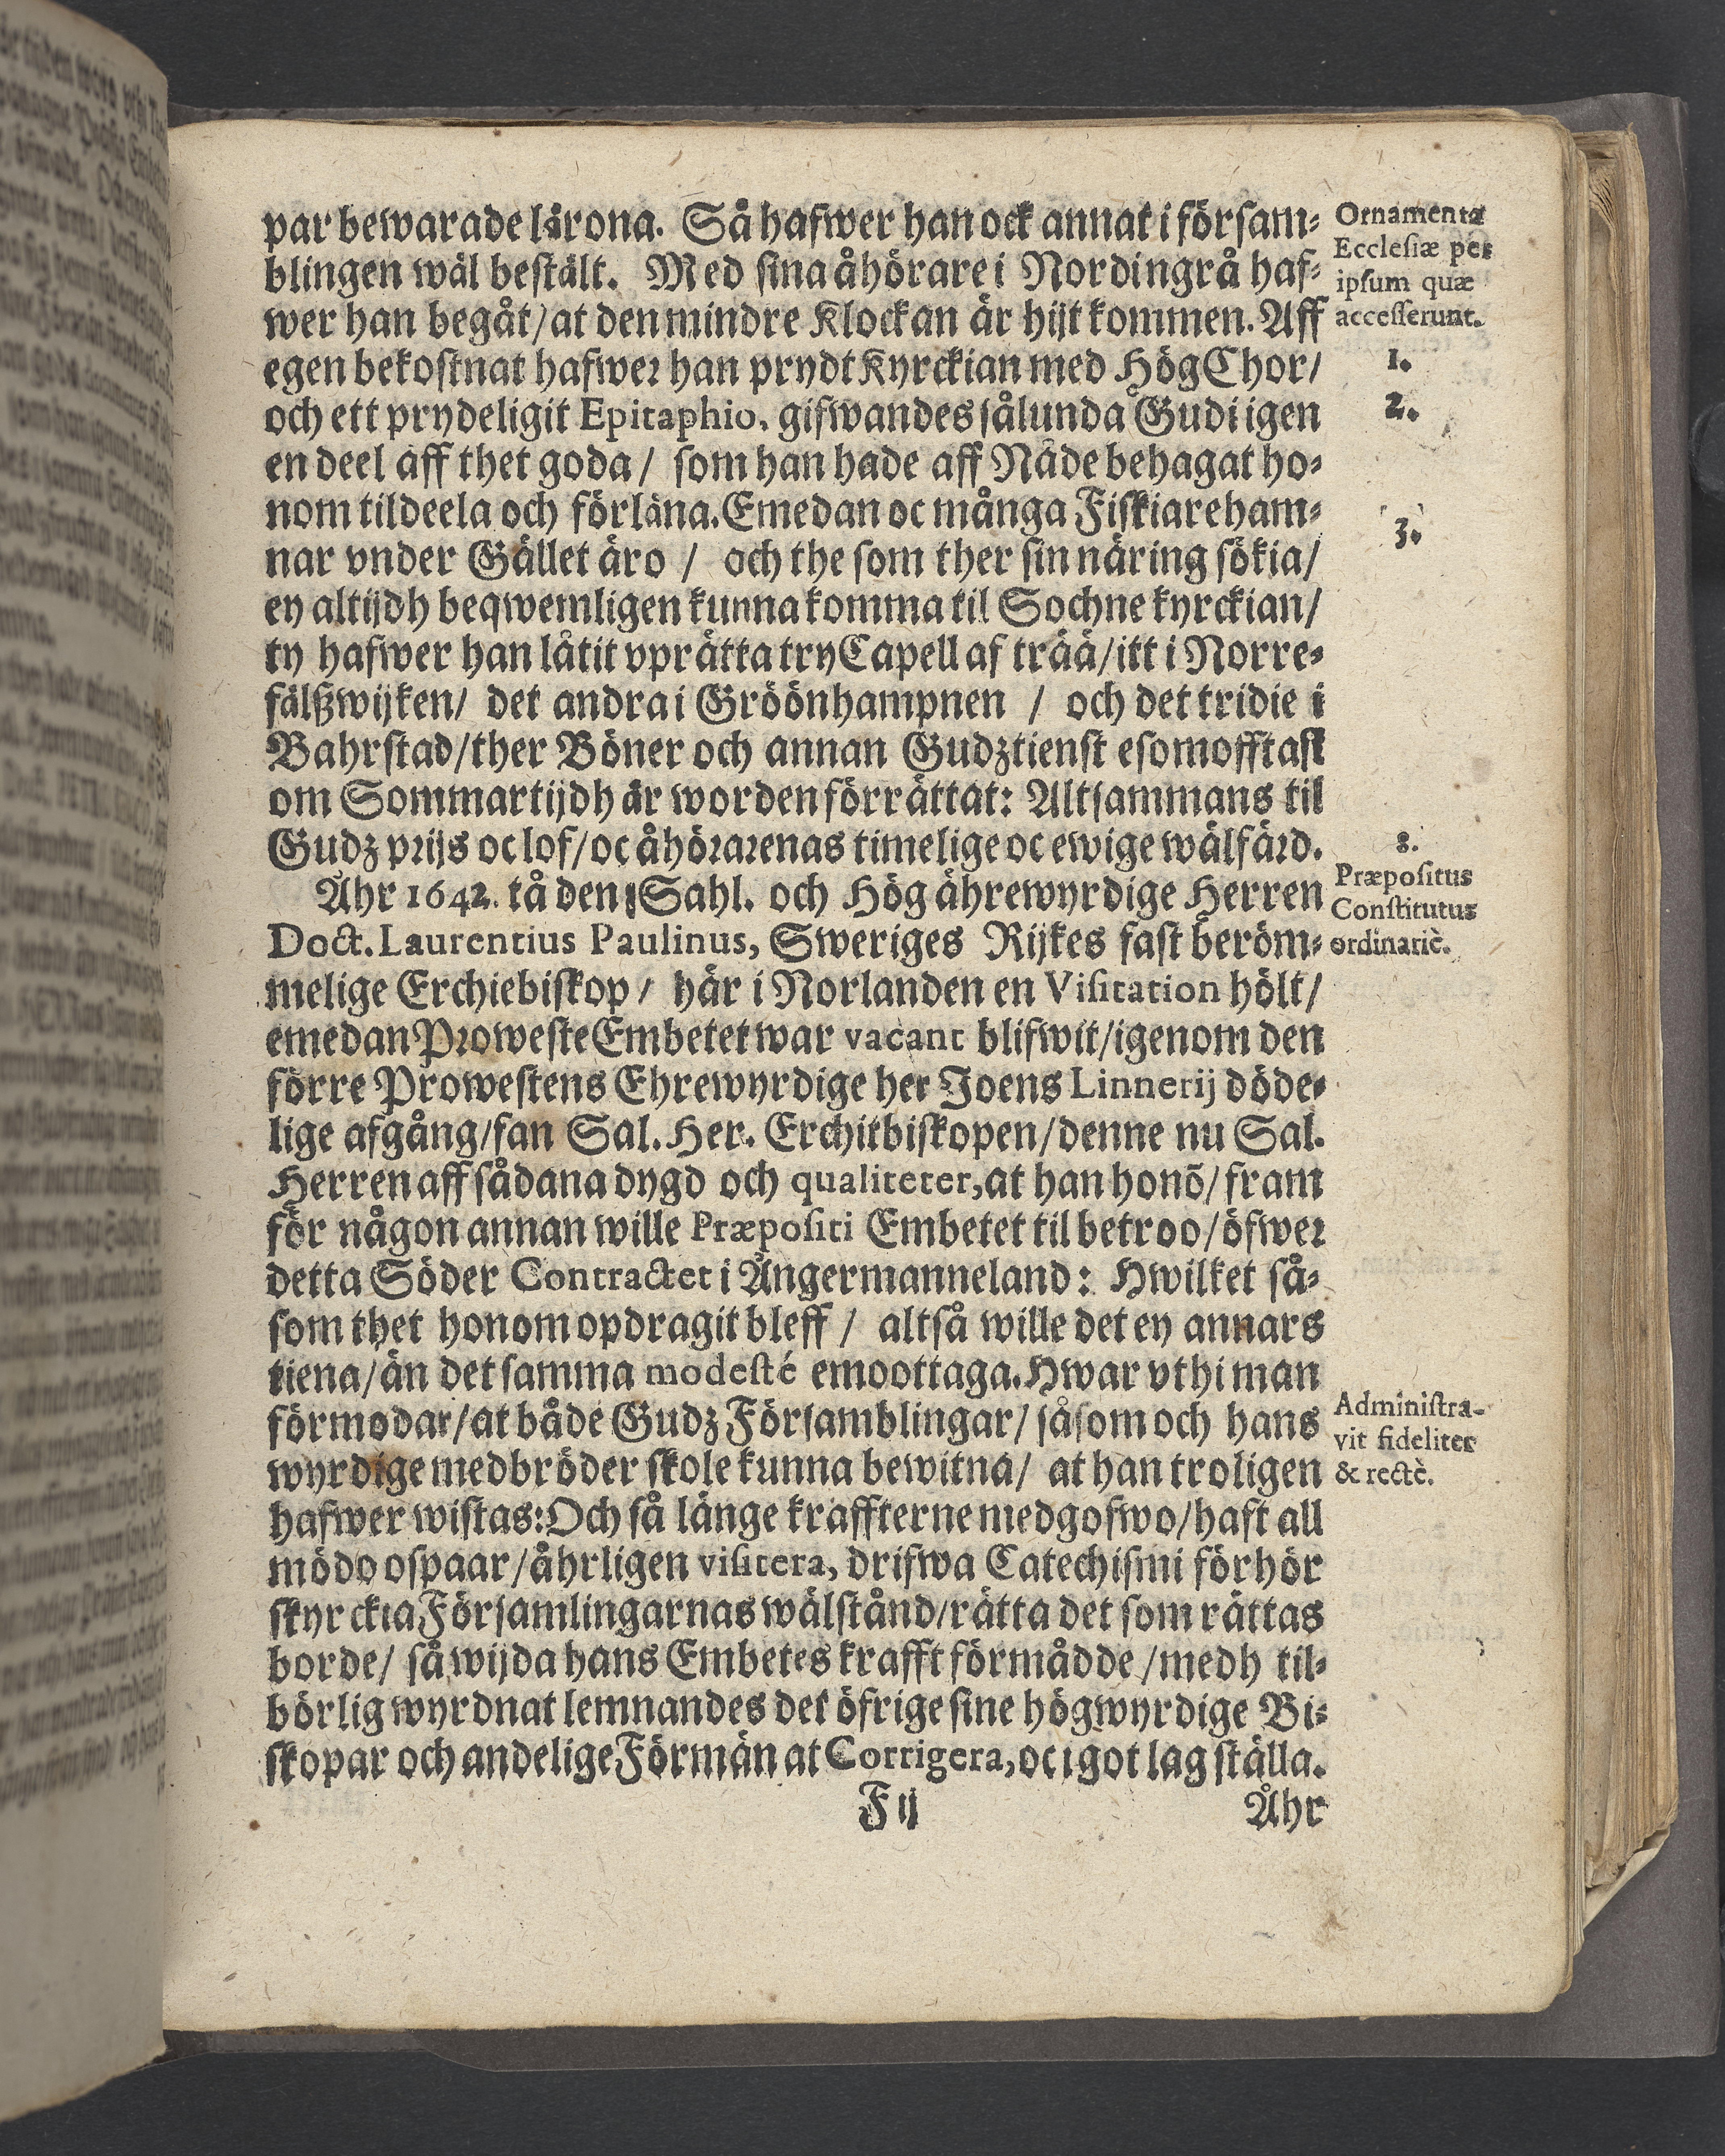 par bewarade lärona. Så hafwer han ock annat i försam-
blingen wäl bestält. Med sina åhörare i Nordingrå haf-
wer han begåt/at den mindre Klockan är hijt kommen. Aff
egen bekostnat hafwer han prydt Kyrckian med Hög Chor/
och ett prydeligit Epitaphio, gifwandes sålunda Gudi igen
en deel aff thet goda/ som han hade aff Nåde behagat ho-
nom tildeela och förläna. Emedan oc många Fiskiareham-
nar vnder Gället äro / och the som ther sin näring sökia/
ey altijdh beqwemligen kunna komma til Sochne kyrckian/
ty hafwer han låtit vprätta try Capell af trää/itt i Norre-
fälßwijken/ det andra i Gröönhampnen / och det tridie i
Bahrstad/ther Böner och annan Gudztienst esomofftast
om Sommartijdh är worden förrättat: Altsammans til
Gudz prijs oc lof/oc åhörarenas timelige oc ewige wälfärd.
Åhr 1642. tå den Sahl. och Hög ährewyrdige Herren
Doct. Laurentius Paulinus, Sweriges Rijkes fast beröm-
melige Erchiebiskop/ här i Norlanden en Visitation hölt/
emedan Proweste Embetet war vacant blifwit/igenom den
förre Prowestens Ehrewyrdige her Joens Linnerij döde-
lige afgång/fan Sal. Her. Erchitbiskopen/denne nu Sal.
Herren aff sådana dygd och qualiteter, at han honō/fram
för någon annan wille Præpositi Embetet til betroo/öfwer
detta Söder Contractet i Ångermanneland: Hwilket så-
som thet honom opdragit bleff / altså wille det ey annars
tiena/än det samma modesté emoottaga. Hwar vthi man
förmodar/at både Gudz Församblingar/ såsom och hans
wyrdige medbröder skole kunna bewitna/ at han troligen
hafwer wistas: Och så länge kraffterne medgofwo/haft all
mödo ospaar/åhrligen visitera, drifwa Catechismi förhör
skyrckia Församlingarnas wälstånd/rätta det som rättas
borde/ så wijda hans Embetes krafft förmådde/medh til-
börlig wyrdnat lemnandes det öfrige sine högwyrdige Bi-
skopar och andelige Förmän at Corrigera, oc i got lag ställa.
F ij
Åhr
Ornamenta
Ecclesiæ per
ipsum quæ
accesserunt.
1.
2.
3.
8.
Præpositus
Constitutus
ordinariè.
Administra-
vit fideliter
& rectè.